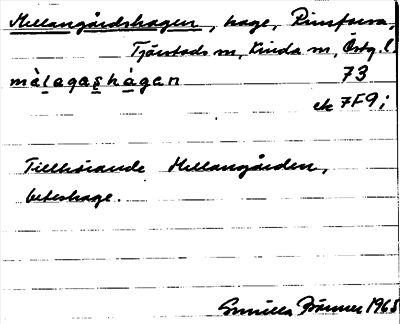 Mellangårdshagen, hage, Rimforsa,
Tjärstads sn, Kinda sn, Östg. l.
màlagashàgen 73
ek 7F9i
Tillhörande Mellangården,
beteshage.
Gunilla 1968